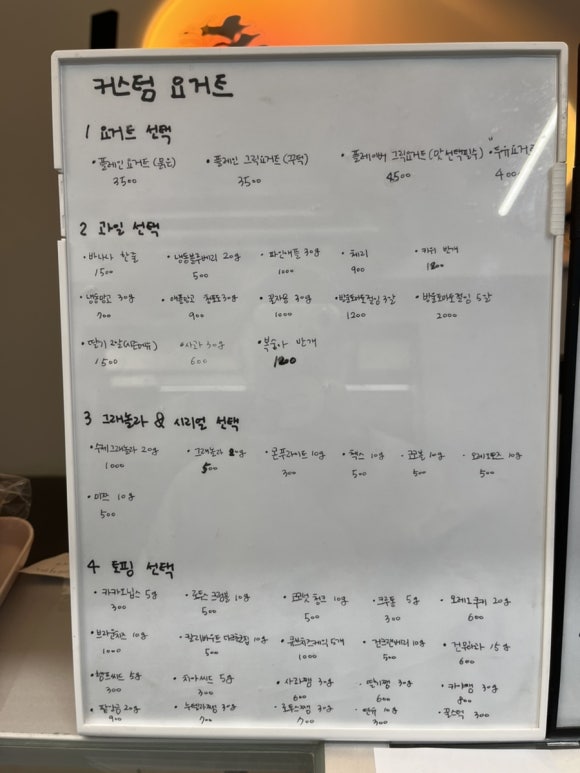 커스텀 요거트
1 요거트 선택
• 플레인 요거트 (묽은) • 플레인 그릭요거트 (꾸덕) • 플레이버 그릭요거트 (맛 선택필수) • 두유요거트
3500 3500 4500 400
2 과일 선택
• 바나나 한줄 • 냉동블루베리 20g • 파인애플 30g • 체리 • 키위 반개
1500 500 1000 900 1200
• 냉동망고 30g • 애플망고 30g • 꿀자몽 30g • 방울토마토절임 3알 • 방울토마토절임 5알
700 900 1000 1200 2000
• 딸기 2알 • 사과 30g • 복숭아 반개
1500 600 1200
3 그래놀라 & 시리얼 선택
• 수제그래놀라 20g • 그래놀라 • 콘푸라이트 10g • 첵스 10g • 코코볼 10g • 오레오오즈 10g
1000 500 300 500 500 500
10g
500
4 토핑 선택
• 카카오닙스 5g • 로투스 크럼블 10g • 코코넛 청크 10g • 크루통 5g • 오레오쿠키 20g
300 500 500 300 600
• 브라운치즈 10g • 칼리바우트 다크현집 10g • 큐브치즈케익 5개 • 건크랜베리 10g • 건무화과 15g
1000 500 1000 500 600
• 햄프씨드 5g • 치아씨드 5g • 사과쨈 30g • 딸기쨈 30g • 카야쨈 30g
300 300 600 600 800
• 팥앙금 20g • 누텔라쨈 30g • 로투스쨈 30g • 연유 10g • 꿀스틱 300
900 700 700 300